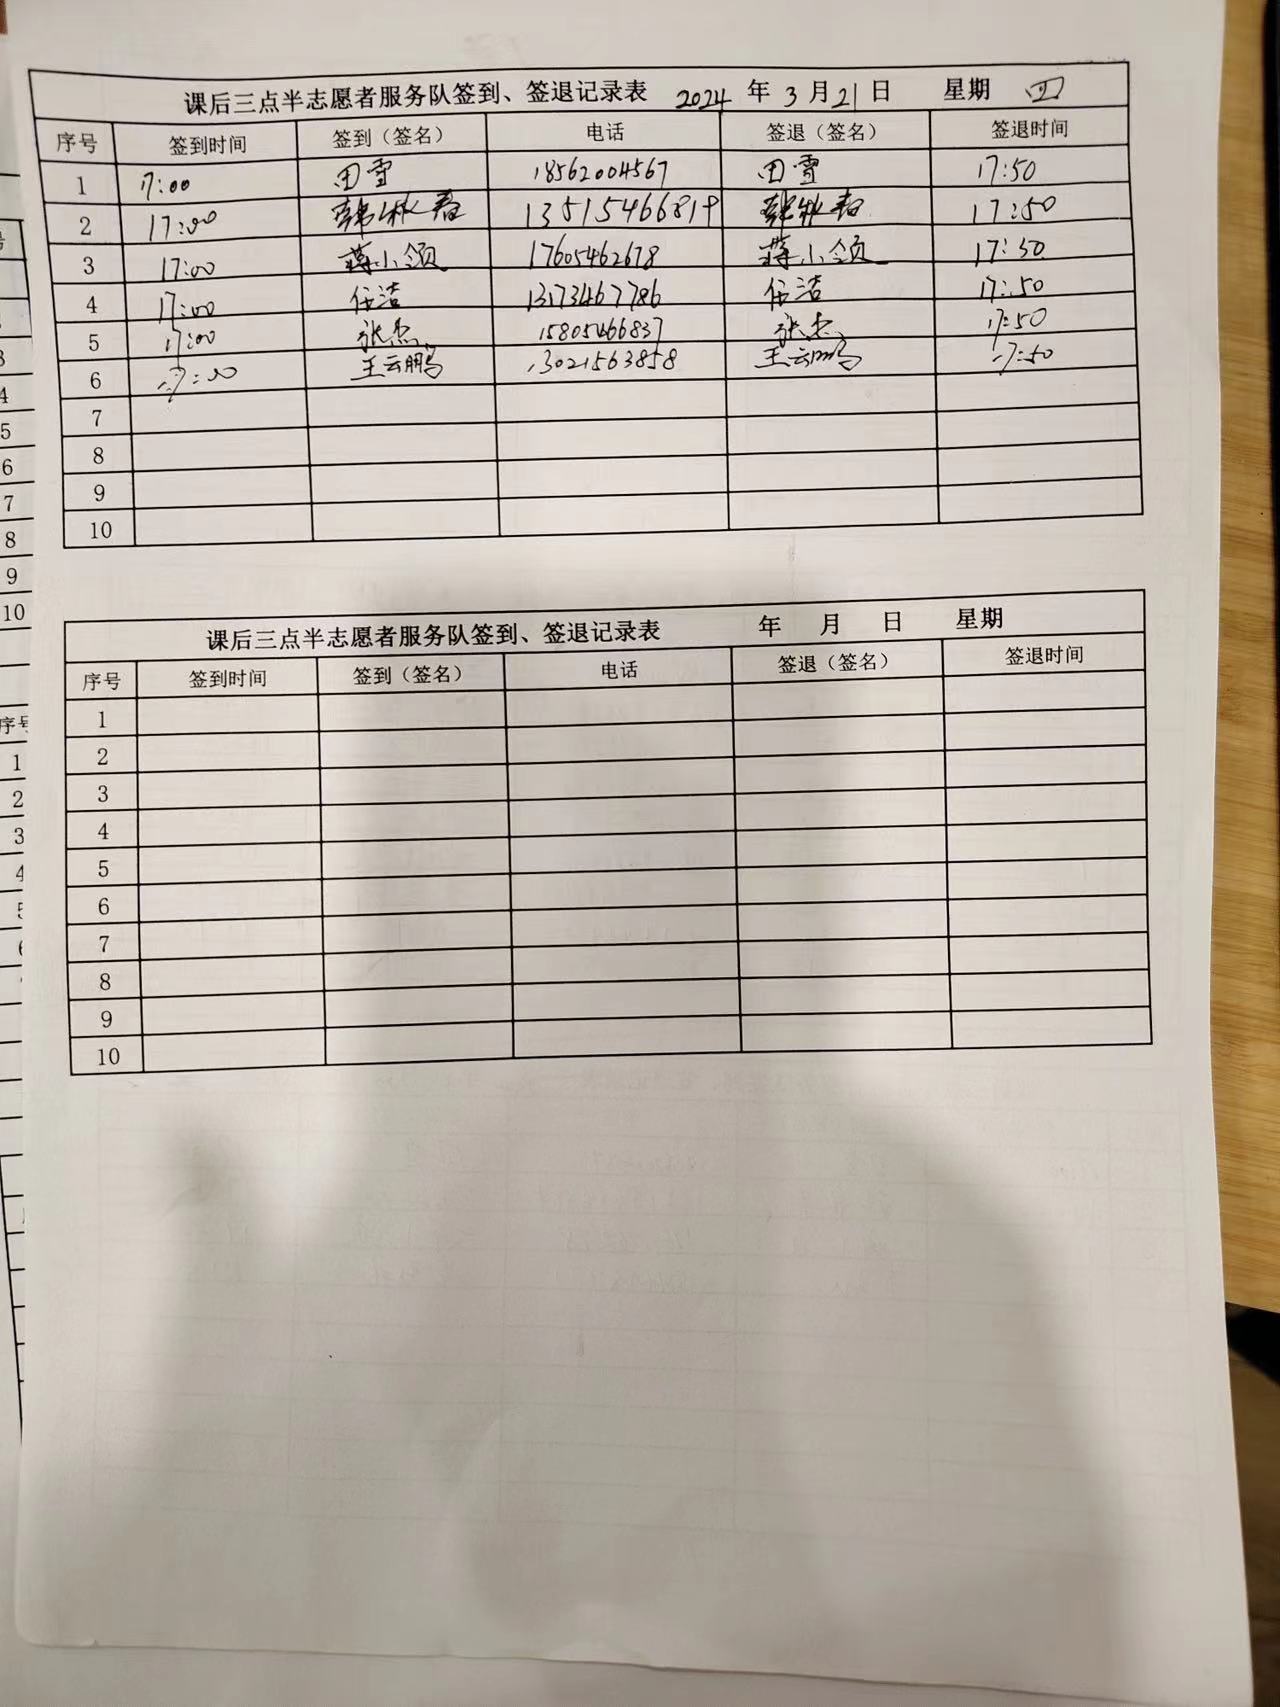 课后三点半志愿者服务队签到、签退记录表 2024 年 3 月 21 日 星期 四
序号 签到时间 签到（签名） 电话 签退（签名） 签退时间
1 17:00 田雪 18562004567 田雪 17:50
2 17:00 韩秋春 13515466819 韩秋春 17:50
3 17:00 蒋小领 17605462678 蒋小领 17:50
4 17:00 任洁 13173467786 任洁 17:50
5 17:00 张杰 15805466837 张杰 17:50
6 17:00 王云鹏 13021563858 王云鹏 17:50
7
8
9
10
课后三点半志愿者服务队签到、签退记录表 年 月 日 星期
序号 签到时间 签到（签名） 电话 签退（签名） 签退时间
1
2
3
4
5
6
7
8
9
10